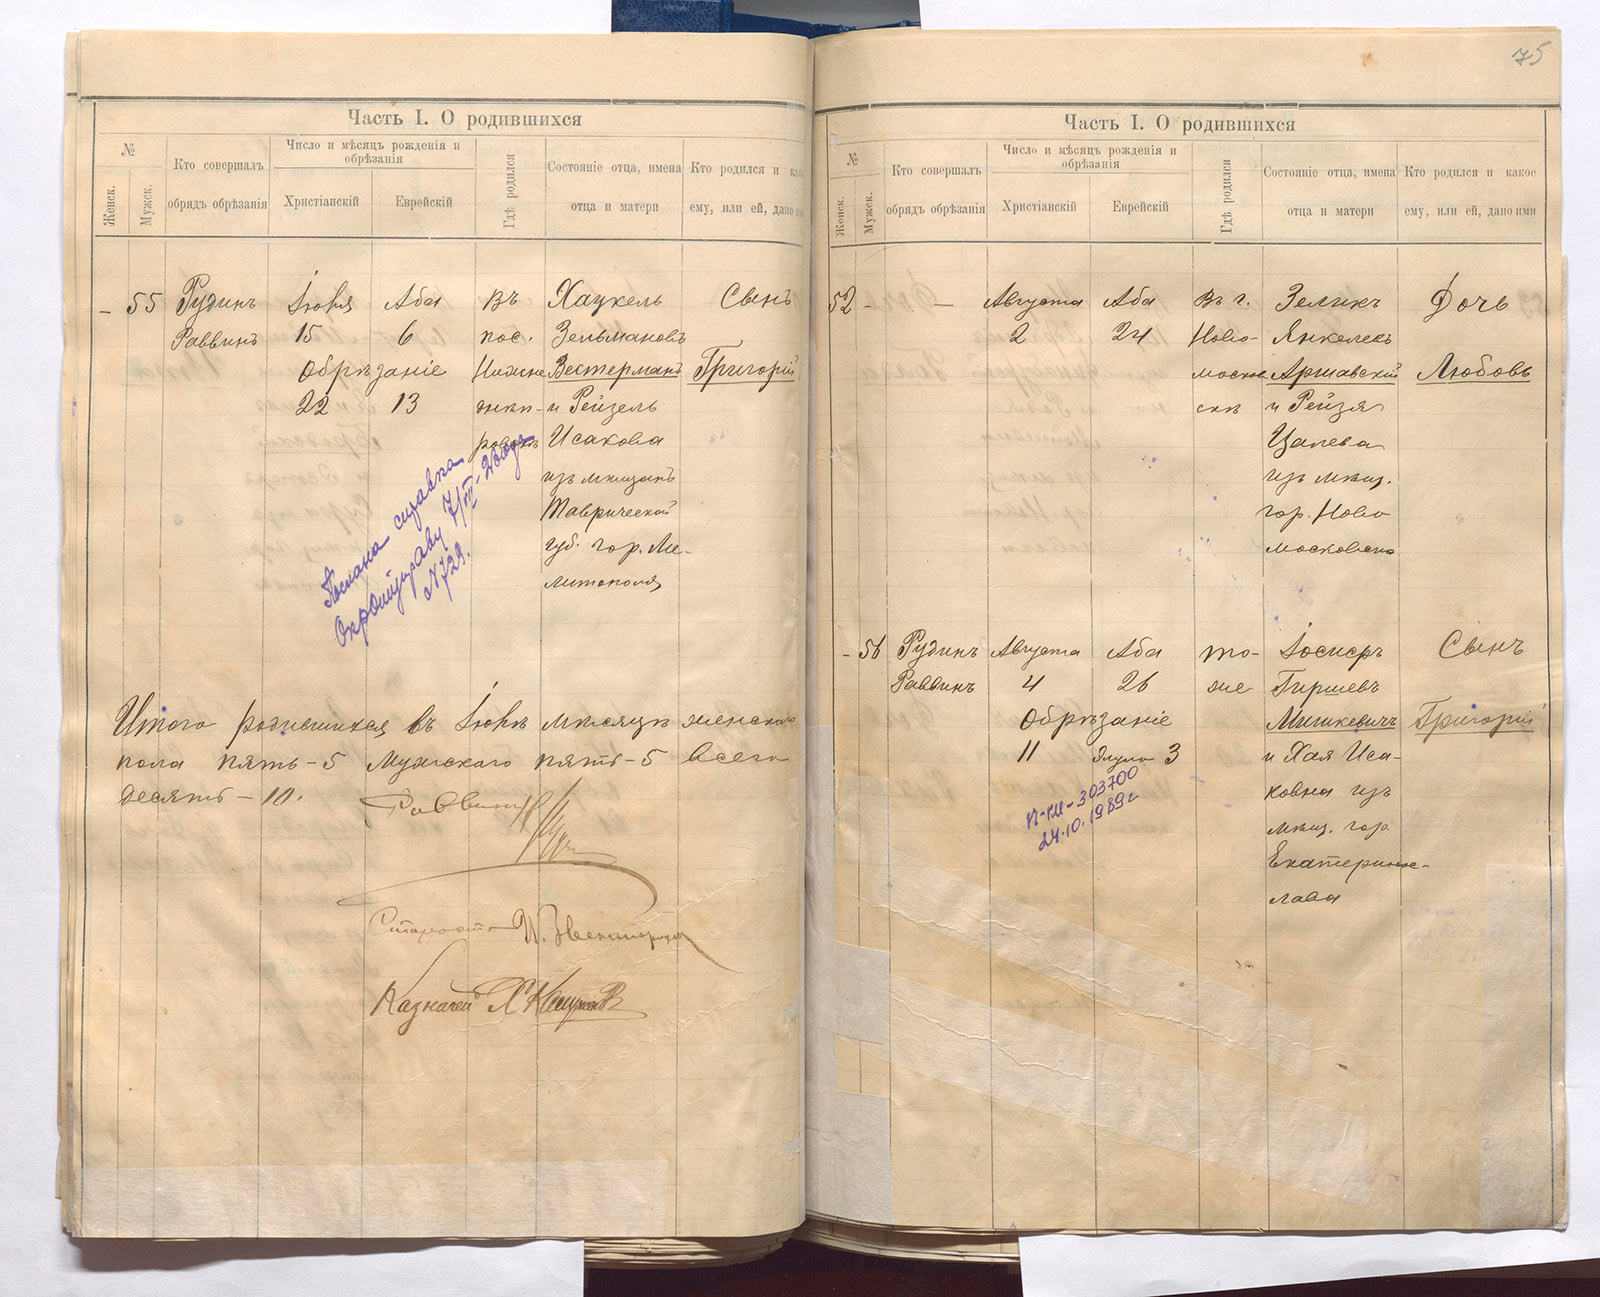 Часть I. О родившихся
№
Женск.
Мужск.
Кто совершалъ
обрядъ обрѣзанія
Число и мѣсяцъ рожденія и
обрѣзанія
Христіанскій
Еврейскій
Гдѣ родился
Состояніе отца, имена
отца и матери
Кто родился и
ему, или ей, дано
- 55
Рудинъ
Раввинъ
Іюля
15
Аба
6
Обрѣзаніе
22
13
въ
пос.
Нижне
днѣп-
ровскъ
Хацкель
Зельмановъ
Вестерманъ
и Рейзель
Исакова
изъ мѣщанъ
Таврической
губ. гор. Ме-
литополя
Сынъ
Григорій
Послана справка
7/III
N 729.
Итого родившихся въ Іюлѣ мѣсяцѣ женскаго
пола пять - 5 Мужскаго пять - 5 всего
десять - 10.
Раввинъ
Староста
Казначей
75
Часть I. О родившихся
№
Женск.
Мужск.
Кто совершалъ
обрядъ обрѣзанія
Число и мѣсяцъ рожденія и
обрѣзанія
Христіанскій
Еврейскій
Гдѣ родился
Состояніе отца, имена
отца и матери
Кто родился и какое
ему, или ей, дано имя
52 -
-
Августа
2
Аба
24
въ г.
Ново-
москов
скѣ
Зеликъ
Янкелевъ
Аршавскій
и Рейзя
Цалева
изъ мѣщ.
гор. Ново
московска
Дочь
Любовь
- 56
Рудинъ
Раввинъ
Августа
4
Аба
26
Обрѣзаніе
11
Элула 3
то-
же
Іосифъ
Гиршевъ
Мишкевичъ
и Хая Иса-
ковна изъ
мѣщ. гор.
Екатеринос-
лава
Сынъ
Григорій
303700
24.10.1989г